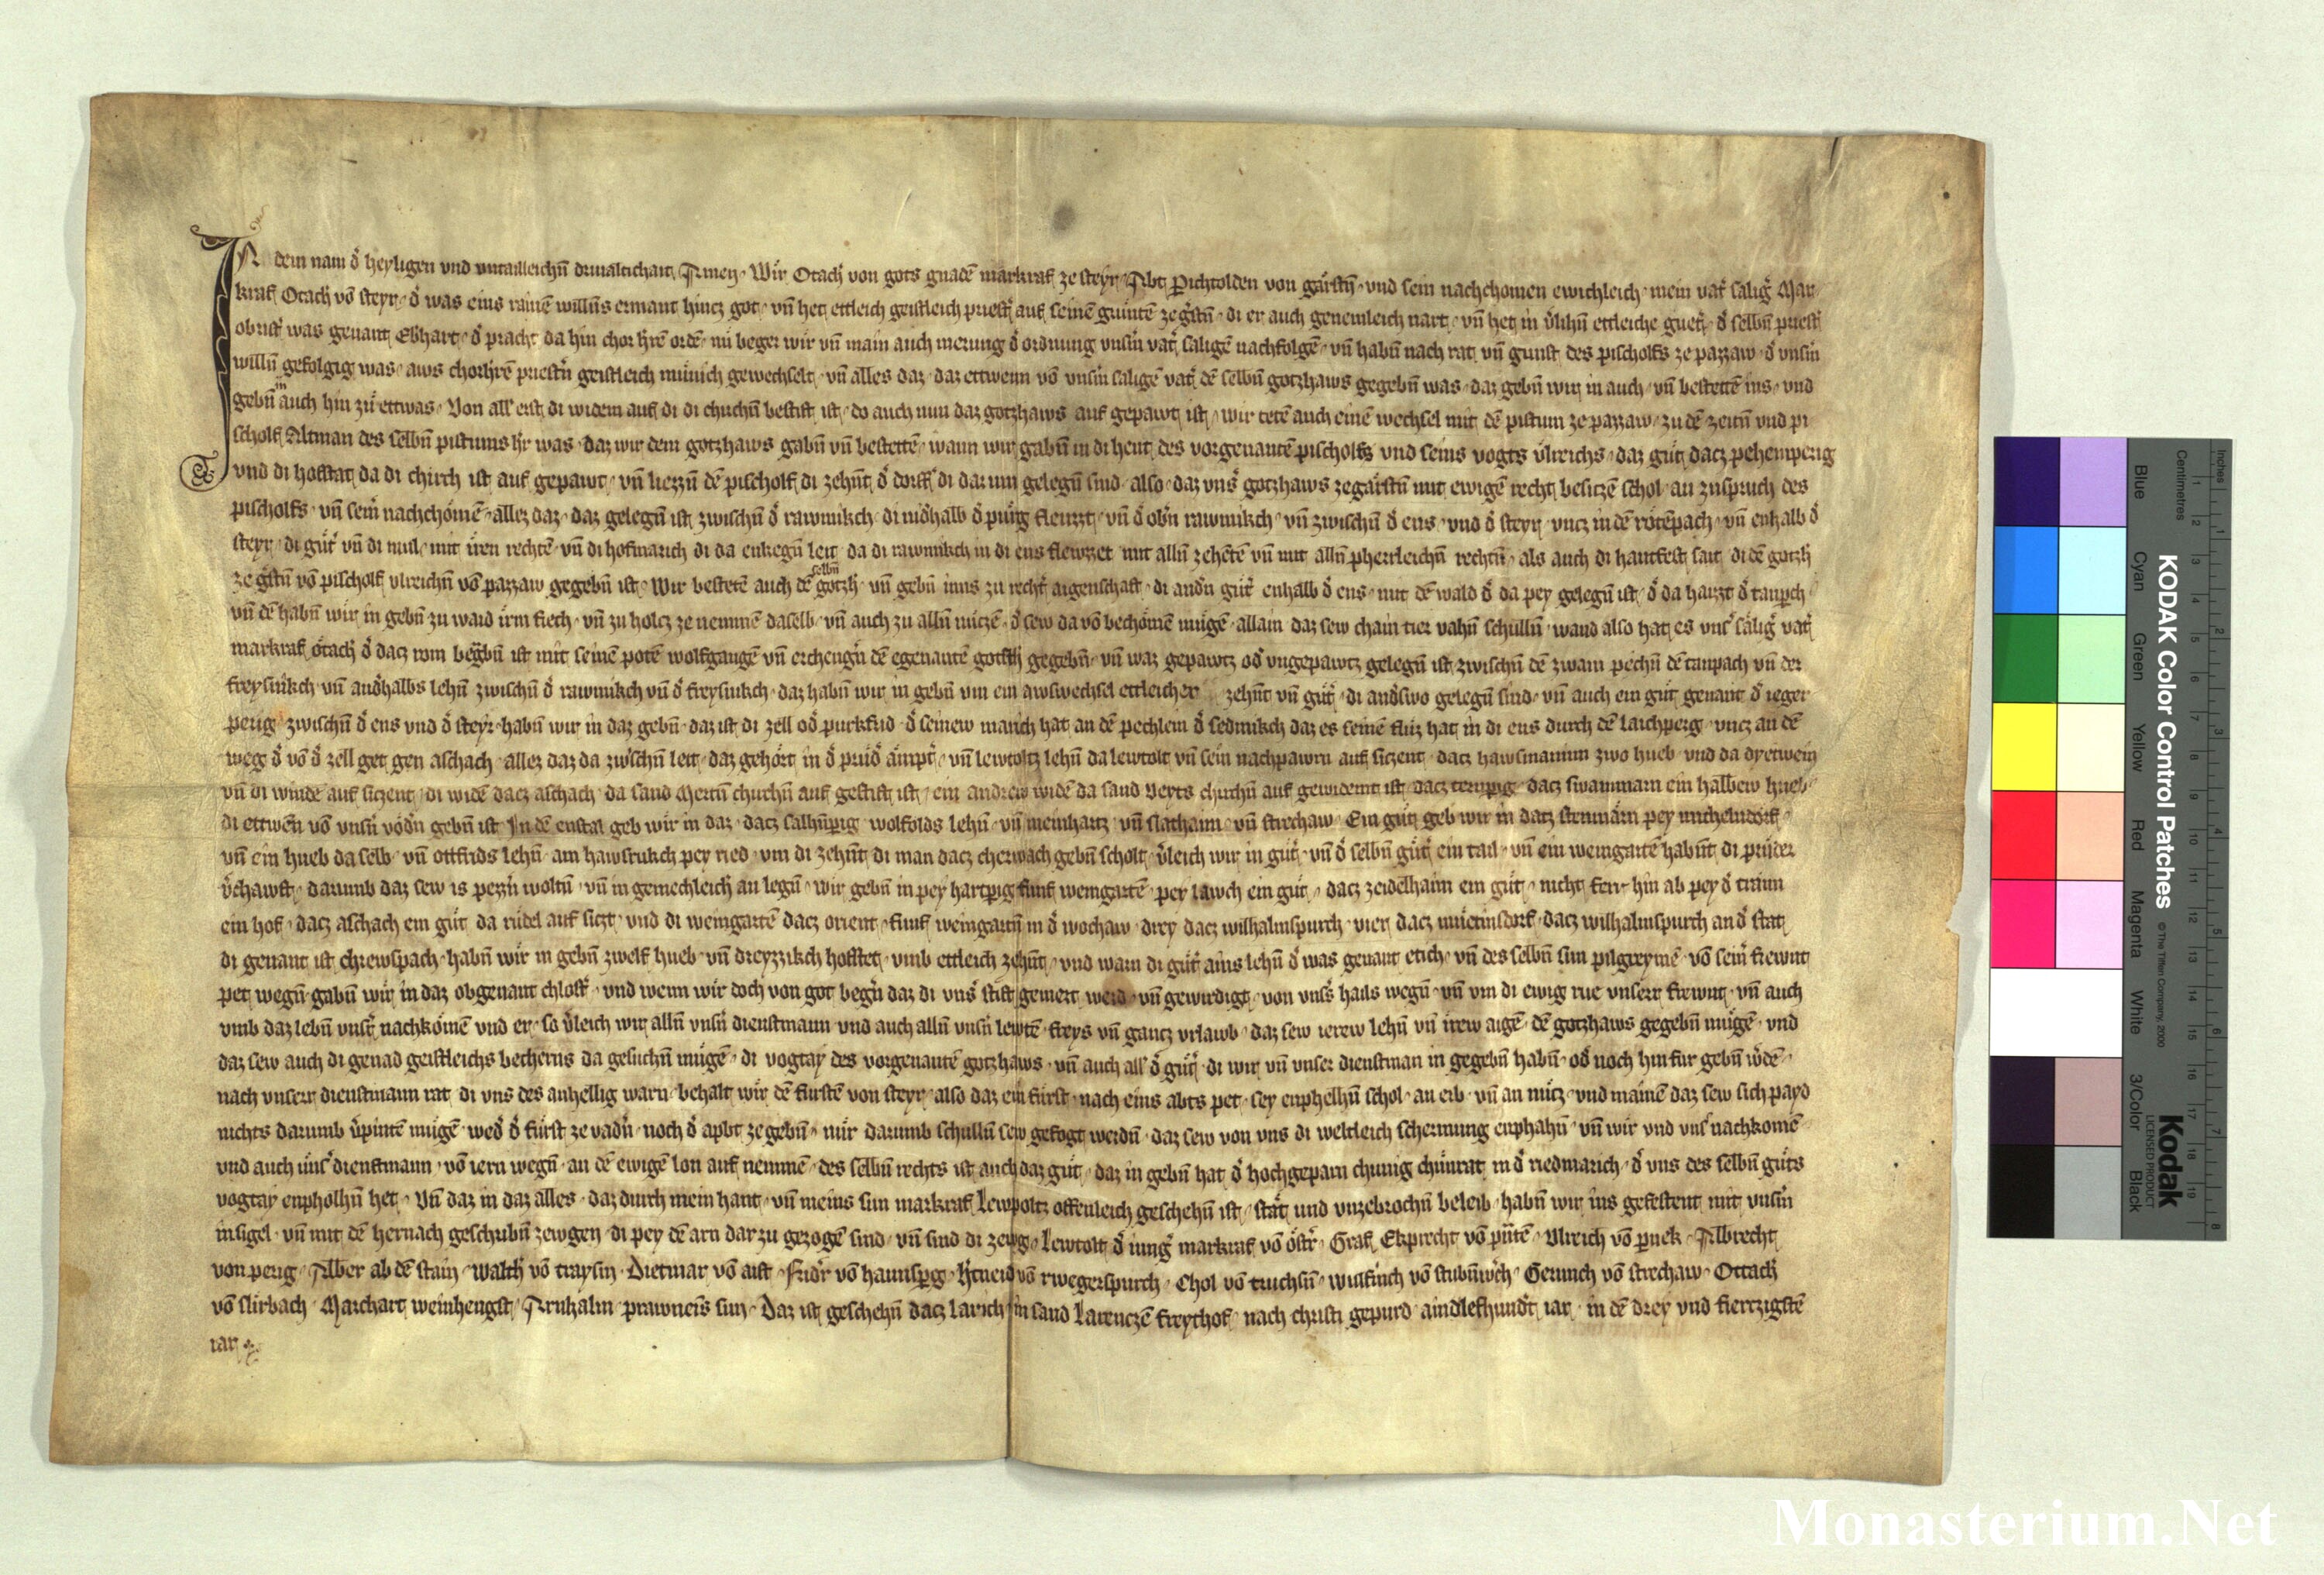 IN dem nam d͛ heyligen vnd vntailleichn̄ driualtichait Amen Wir Otach͛ von gots gnadē markraf ze steyr Abt Pichtolden von gärstn̄ vnd sein nachchomen ewichleich mein vat͛ sälig͛ Mar
kraf Otach͛ vō steyr d͛ was eins rainē willn̄s ermant hincz got vn̄ het ettleich geistleich priest͛ auf seinē grüntē ze g͛stn̄ di er auch gemeinleich nart vn̄ het in v͛lihn̄ ettleiche guet͛ d͛ selbn̄ priest͛
obrist͛ was genant Ebhart d͛ pracht da hin chorh͛rē ordē nü beger wir vn̄ main auch merung d͛ ordnung vnsm̄ vat͛ säligē nachfolgē vn̄ habn̄ nach rat vn̄ gunst des pischolfs ze pazzaw d͛ vnsm̄
willn̄ gefolgig was aws chorh͛rē priest͛n geistleich münich gewechselt vn̄ alles daz daz ettwenn vō vnsm̄ säligē vat͛ dē selbn̄ gotzhaws gegebn̄ was daz gebn̄ wir in auch vn̄ bestettē ins vnd
gebn̄ in auch hin zü ettwas Von all͛ erst di widem auf di di chirchn̄ bestift ist do auch nun daz gotzhaws auf gepawt ist wir tetē auch einē wechsel mit dē pistum ze pazzaw zu dē zeitn̄ vnd pi
scholf Altman des selbn̄ pistums h͛r was daz wir dem gotzhaws gabn̄ vn̄ bestettē wann wir gabn̄ in di hent des vorgenantē pischolfs vnd seins vogts vlreichs daz güt dacz pehemperig
vnd di hofstat da di chirch ist auf gepawt vn̄ liezzn̄ dē pischolf di zehn̄t d͛ dorff͛ di dar um gelegn̄ sind also daz vns͛ gotzhaws ze gärstn̄ mit ewigē recht besiczē schol an zuspruch des
pischolfs vn̄ seīn nachchömē allez daz daz gelegn̄ ist zwischn̄ d͛ rawmikch di nid͛halb d͛ pürg fleuzzt vn̄ d͛ ob͛n rawmikch vn̄ zwischn̄ d͛ ens vnd d͛ steyr vncz in dē rötēpach vn̄ enhalb d͛
steyr di güt͛ vn̄ di mül mit iren rechtē vn̄ di hofmarich di da enkegn̄ leit da di rawmikch in di ens flewzzet mit alln̄ zehētē vn̄ mit alln̄ pherrleichn̄ rechtn̄ als auch di hantfest sait di dē gotzh͛
ze g͛stn̄ vō pischolf vlreichn̄ vō pazzaw gegebn̄ ist Wir bestetē auch dē selbn̄ gotzh͛ vn̄ gebn̄ inns zu recht͛ aigenschaft di and͛n güt͛ enhalb d͛ ens mit dē wald d͛ da pey gelegn̄ ist d͛ da haizt d͛ taupch
vn̄ dē habn̄ wir in gebn̄ zu waid irm fiech vn̄ zu holcz ze nemmē daselb vn̄ auch zu alln̄ nüczē d͛ sew da vō bechömē mügē allain daz sew chain tier vahn̄ schulln̄ wand also hat es vns͛ sälig͛ vat͛
markraf ötach͛ d͛ dacz rom begrabn̄ ist mit seinē potē wolfgangē vn̄ erchengn̄ dē egenantē gotsh͛ gegebn̄ vn̄ waz gepawtz od͛ vngepawtz gelegn̄ ist zwischn̄ dē zwain pechn̄ dē taupach vn̄ der
freysinkch vn̄ and͛halbs lehn̄ zwischn̄ d͛ rawmikch vn̄ d͛ freysinkch daz habn̄ wir in gebn̄ vm ein awswechsel ettleicher zehn̄t vn̄ güt͛ di and͛swo gelegn̄ sind vn̄ auch ein güt genant d͛ ieger
perig zwischn̄ d͛ ens vnd d͛ steyr habn̄ wir in daz gebn̄ daz ist di zell od͛ purkfrid d͛ seinew march hat an dē pechlein d͛ sedmikch daz es seinē fluz hat in di ens durch dē laichperg vncz an dē
weg d͛ vō d͛ zell get gen aschach allez daz da zwischn̄ leit daz gehört in d͛ prüd͛ ämpt͛ vn̄ lewtoltz lehn̄ da lewtolt vn̄ sein nachpawrn auf siczent dacz hawsmannn zwo hueb vnd da dyetwein
vn̄ di windē auf siczent di widē dacz aschach da sand Mertn̄ chirchn̄ auf gestift ist ein andrew widē da sand Veyts chirchn̄ auf gewidemt ist dacz ternpg dacz swammarn ein halbew hueb
di ettwen vō vnsn̄ vod͛n gebn̄ ist In dē enstal geb wir in daz dacz salhn̄pig wolfolds lehn̄ vn̄ meinhartz vn̄ slathaim vn̄ strechaw Ein güt geb wir in datz stenmarn pey michelndorf
vn̄ ein hueb da selb vn̄ ottfrids lehn̄ am hawsrukch pey ried vm di zehn̄t di man dacz cherbach gebn̄ scholt v͛leich wir in güt͛ vn̄ d͛ selbn̄ güt͛ ein tail vn̄ ein weingartē habn̄t di prüder
v͛chawft darumb daz sew is pezz͛n woltn̄ vn̄ in gemechleich͛ an legn̄ wir gebn̄ in pey hartpig fünf weingartē pey lawch ein güt dacz zeidelhaim ein güt nicht ferr hin ab pey d͛ traun
ein hof dacz aschach ein güt da rüdel auf siczt vnd di weingartē dacz orient fünf weingartn̄ in d͛ wochaw drey dacz wilhalmspurch vier dacz müetinsdorf dacz wilhalmspurch an d͛ stat
di genant ist chrewspach habn̄ wir in gebn̄ zwelf hueb vn̄ dreyzzikch hofstet vmb ettleich zehn̄t vnd warn di güt͛ ains lehn̄ d͛ was genant etich vn̄ des selbn̄ sun pilgreymē vō seīn frewnt
pet wegn̄ gabn̄ wir in daz obgenant chlost͛ vnd wenn wir doch von got beg͛n daz di vns͛ stift gemert werd vn̄ gewirdigt von vns͛s hails wegn̄ vn̄ vm di ewig rue vnserr frewnt vn̄ auch
vmb daz lebn̄ vns͛r nachkömē vnd er so v͛leich wir alln̄ vnsn̄ dienstmann vnd auch alln̄ vnsn̄ lewtē freys vn̄ gancz vrlawb daz sew ierew lehn̄ vn̄ irew aigē dē gotzhaws gegebn̄ mügē vnd
daz sew auch di genad geistleichs becherns da gesuchn̄ mügē di vogtay des vorgenantē gotzhaws vn̄ auch all͛ d͛ güt͛ di wir vn̄ vnser dienstman in gegebn̄ habn̄ od͛ noch hin fur gebn̄ w͛dē
nach vnserr dienstmann rat di vns des anhellig warn behalt wir dē fürstē von steyr also daz ein fürst nach eins abts pet sey enphelhn̄ schol an erb vn̄ an nücz vnd mainē daz sew sich payd
nichts darumb v͛pintē mügē wed͛ d͛ fürst ze vad͛n noch d͛ apbt ze gebn̄ nür darumb schulln̄ sew gefogt werdn̄ daz sew von vns di weltleich schermung enphahn̄ vn̄ wir vnd vns͛ nachkomē
vnd auch vns͛ dienstmann vō iern wegn̄ an dē ewigē lon auf nemmē des selbn̄ rechts ist auch daz güt daz in gebn̄ hat d͛ hochgeparn chunig chünrat in d͛ riedmarich d͛ vns des selbn̄ güts
vogtay enpholhn̄ het Vn̄ daz in daz alles daz durch mein hant vn̄ meins sun markraf Lewpoltz offenleich geschehn̄ ist stät vnd vnzebrochn̄ beleib habn̄ wir ins gefestent mit vnsm̄
insigel vn̄ mit dē hernach geschribn̄ zewgen di pey dē arn dar zu gezogē sind vn̄ sind di zewg Lewtolt d͛ iung͛ markraf vō östr͛ Graf Ekprecht vō pütē Vlreich vō pnek Albrecht
von perig Alber ab dē stain Walch͛ vō traysin Dietmar vō aist Frid͛r vō haunspg H͛tneid vō rwegerspurch Chol vō truchsn̄ wulfinch vō stubn̄w͛ch Gerunch vō strechaw Ottach͛
vō slirbach Marchart weinhengst Arnhalm prawneins sun Daz ist geschehn̄ dacz larich in sand Larenczē freythof nach christi gepurd aindlefhund͛t iar in dē drey vnd fiertzigstē
iar
KODAK Color Control Patches
© The Tiffen Company, 2000
Kodak
LICENSED PRODUCT
Blue
Cyan
Green
Yellow
Red
Magenta
White
3/Color
Black
Inches
Centimetres
Monasterium.Net